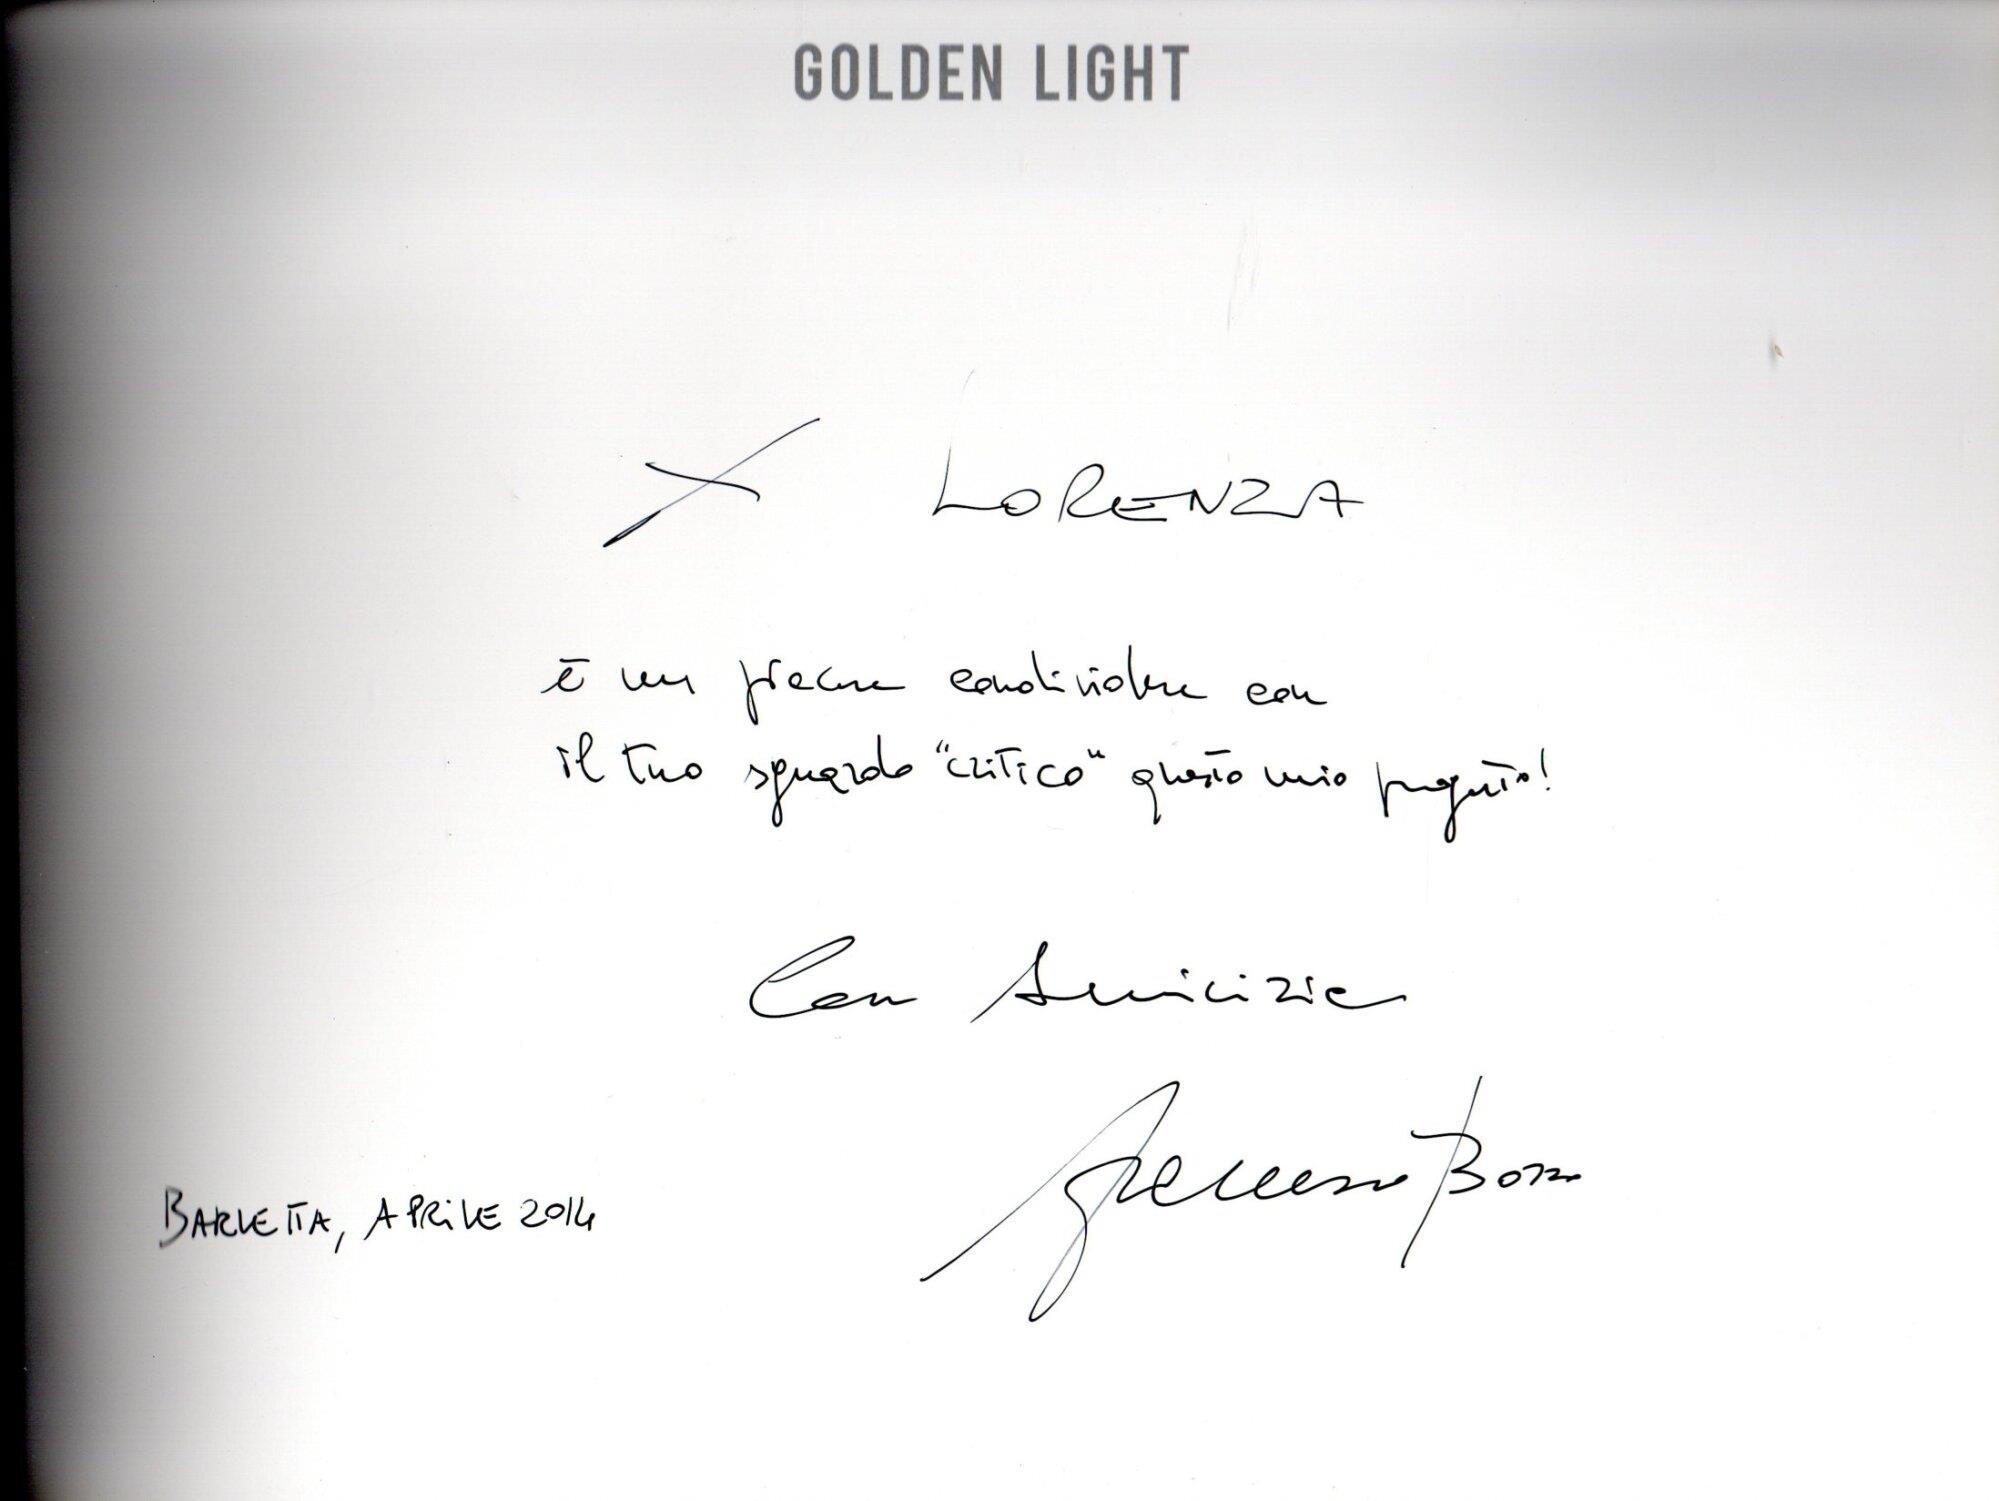 GOLDEN LIGHT
X LORENZA
è un piacere condividere con
il tuo sguardo "critico" questo mio progetto!
Con Amicizia
BARLETTA, APRILE 2014